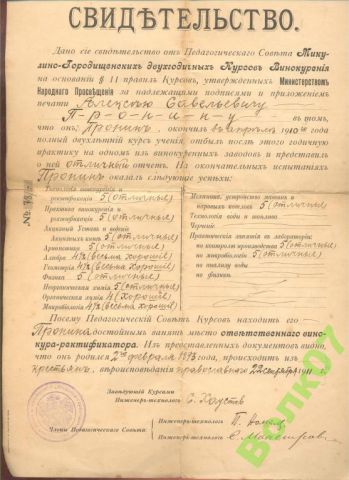 СВИДѢТЕЛЬСТВО.
Дано сіе свидѣтельство отъ Педагогическаго Совѣта Мику-
лино-Городищенскихъ двухгодичныхъ Курсовъ Винокуренія
на основаніи § 11 правилъ Курсовъ, утвержденныхъ Министерствомъ
Народнаго Просвѣщенія за надлежащими подписями и приложеніемъ
печати Алексѣю Савельевичу
Пронину въ томъ,
что онъ, Пронинъ, окончилъ въ апрѣлѣ 1910 года
полный двухлѣтній курсъ ученія отбылъ послѣ этого годичную
практику на одномъ изъ винокуренныхъ заводовъ и представилъ
о ней отличный отчетъ. На окончательныхъ испытаніяхъ
Пронинъ оказалъ слѣдующіе успѣхи:
Технологія винокуренія и
ректификаціи 5 (отличные)
Практика винокуренія и
ректификаціи 5 (отличные)
Акцизный Уставъ и веденіе
Акцизныхъ книгъ 5 (отличные)
Ариѳметика 5 (отличные)
Алгебра 4½ (весьма хорошіе)
Геометрія 4½ (весьма хорошіе)
Физика 5 (отличные)
Неорганическая химія 5 (отличные)
Органическая химія 4 (хорошіе)
Микробіологія 4½ (весьма хорошіе)
Механика, устройство машинъ и
паровыхъ котловъ 5 (отличные)
Технологія воды и топлива
Черченіе
Практическія занятія въ лабораторіи:
по контролю производства 5 (отличные)
по микробіологіи 5 (отличные)
по анализу воды
по физикѣ
Посему Педагогическій Совѣтъ Курсовъ находитъ его
Пронина достойнымъ званія отвѣтственнаго вино-
кура-ректификатора. Изъ представленныхъ документовъ видно,
что онъ родился 2го февраля года, происходитъ изъ
крестьянъ, вѣроисповѣданія православнаго 22 1911 г.
Завѣдующій Курсами
Инженеръ-технологъ
Члены Педагогическаго Совѣта:
Инженеръ-технологъ
Инженеръ-технологъ
Волк07